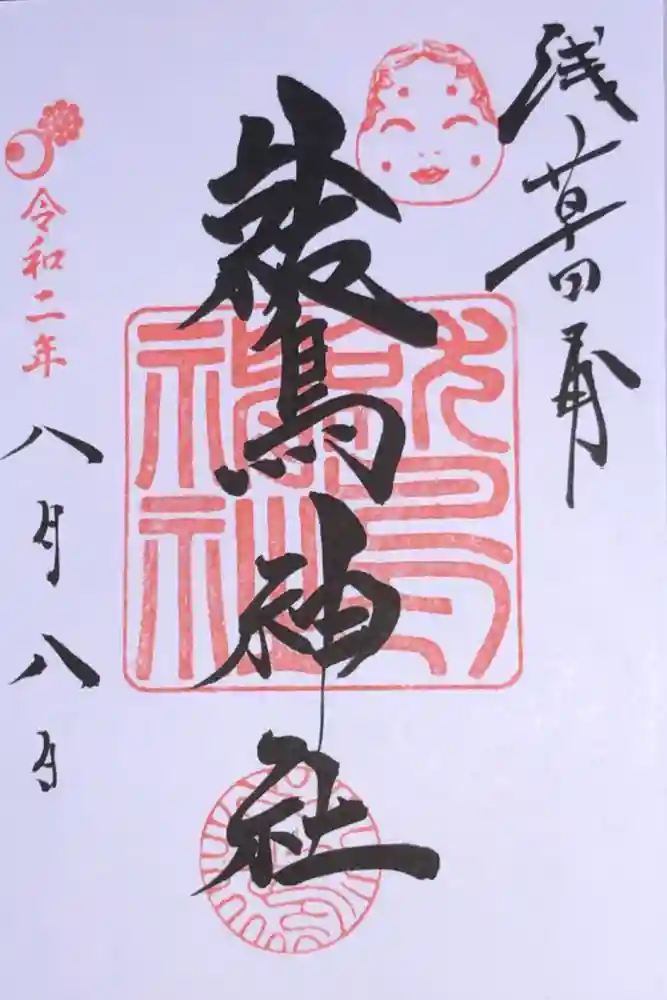 浅草田甫
鷲神社
令和二年
八月八日